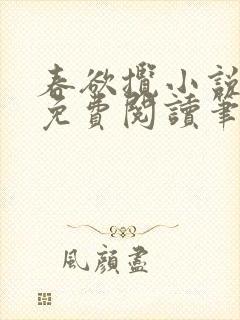 春欲攬小說
免費閱讀筆
風顏盡